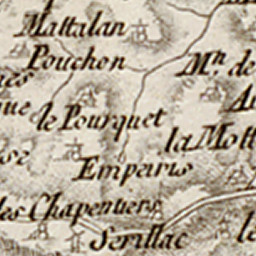 Mattalan
Pouchon
M.n de
le Pourquet
la Mott
Empeiris
les Chapentiers
Serillac
le